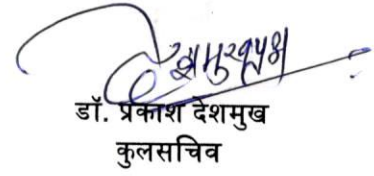 डॉ. प्रकाश देशमुख
कुलसचिव